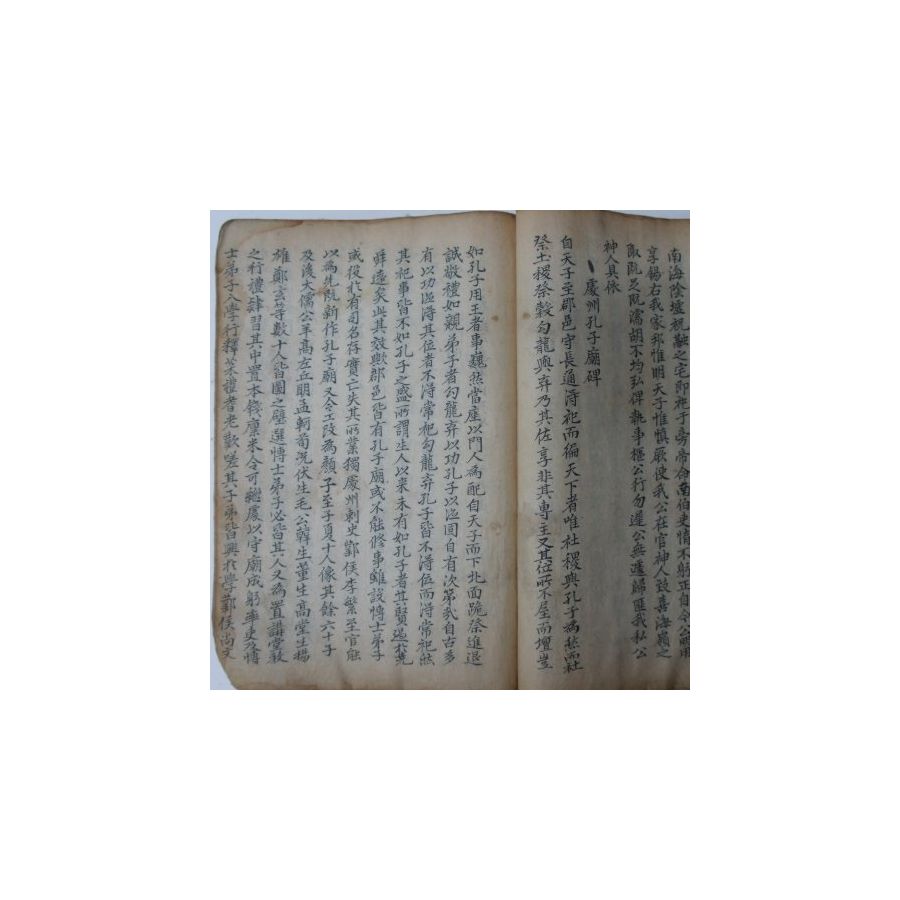 南海陰墟祝融之宅即祀于旁帝命南伯吏惰不躬正自今公明用
享錫右我家邦惟明天子惟慎厥使我公在官神人致喜海嶺之
陬既足既濡胡不均弘俾執事樞公行勿遲公無遽歸匪我私公
神人具依
處州孔子廟碑
自天子至郡邑守長通淂祀而徧天下者唯社稷與孔子為然而社
祭土稷祭穀勾龍與弃乃其佐享非其專主又其位所不屋而壇豈
如孔子用王者事巍然當座以門人為配自天子而下北面跪祭進退
誠敬禮如親弟子者勾龍弃以功孔子以德固自有次第哉自古多
有以功德淂其位者不淂常祀勾龍弃孔子皆不淂位而淂常祀然
其祀事皆不如孔子之盛所謂生人以來未有如孔子者其賢過扵堯
舜遠矣此其效歟郡邑皆有孔子廟或不能修事雖設博士弟子
或役扵有司名存實亡失其所業獨處州刺史鄴侯李繁至官能
以為先既新作孔子廟又令工改為顏子至子夏十人像其餘六十子
及後大儒公羊高左丘明孟軻荀況伏生毛公韓生董生高堂生揚
雄鄭玄等數十人皆圖之壁選博士弟子必皆其人又為置講堂教
之行禮肄習其中置本錢廩米令可繼處以守廟成躬率吏及博
士弟子入學行釋菜禮耆老歎嗟其子弟皆興扵學鄴侯尚文